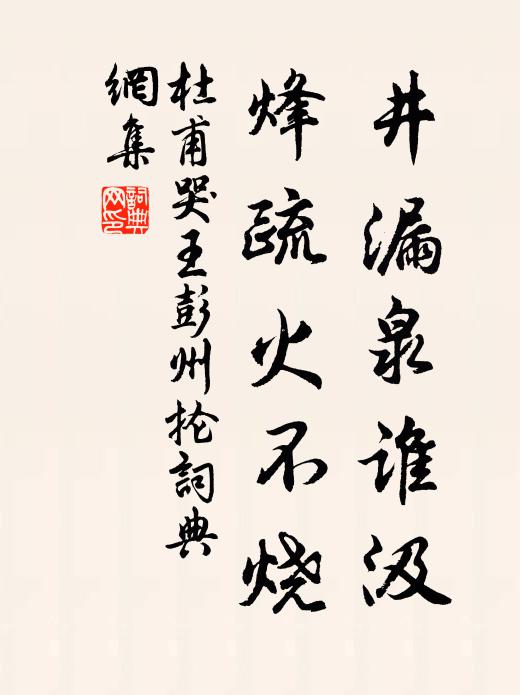 井漏泉谁汲
烽疏火不烧
杜甫哭王彭州抡詞典
網集
詞典
网印